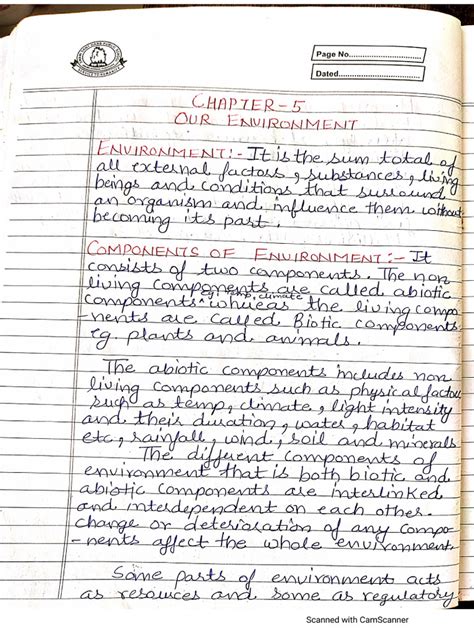 Page No.
Dated.
CHAPTER-5
OUR ENVIRONMENT
ENVIRONMENT:- It is the sum total of
all external factors, substances, living
beings and conditions that surround
an organism and influence them without
becoming its part.
COMPONENTS OF ENVIRONMENT:- It
consists of two components. The non
living components are called abiotic
eg. temp, climate
components ^ whereas the living compo
-nents are called Biotic components
eg. plants and animals.
The abiotic components includes non
living components such as physical factors
such as temp, climate, light intensity
and their duration, water, habitat
etc, rainfall, wind, soil and minerals
The different components of
environment that is both biotic and
abiotic components are interlinked
and interdependent on each other.
change or deterioration of any compo-
-nents affect the whole environment
Some parts of environment acts
as resources and some as regulatory
Scanned with CamScanner